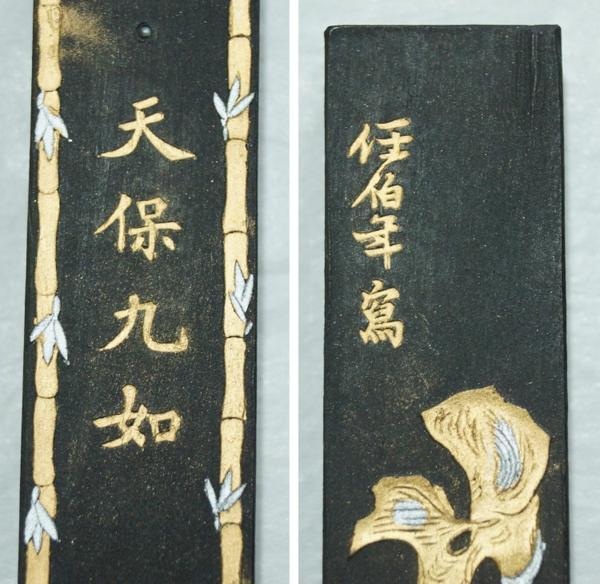 天保九如
任伯年寫